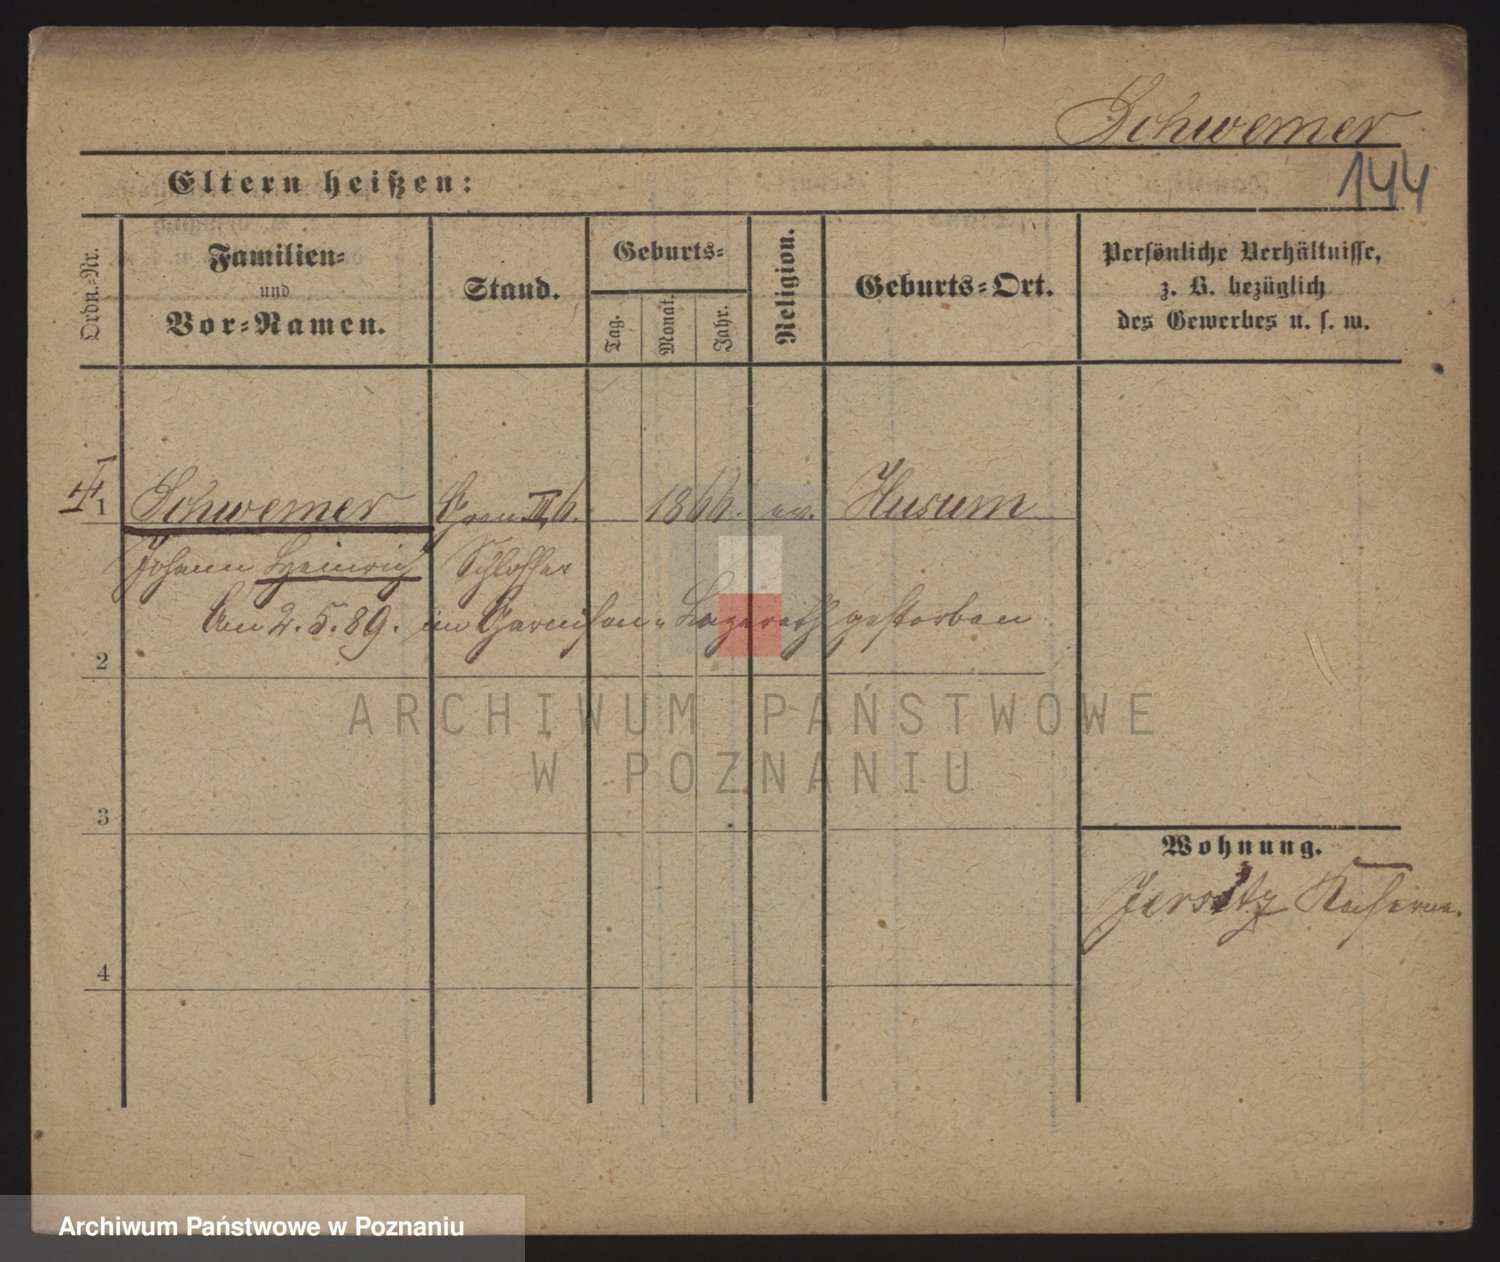 Schwemer
144
Eltern heißen:
Ordn.-Nr.
Familien-
und
Vor-Namen.
Stand.
Geburts-
Tag.
Monat.
Jahr.
Religion.
Geburts-Ort.
Persönliche Verhältnisse,
z. B. bezüglich
des Gewerbes u. s. w.
1 Schwemer Gren. II, 6. 1866. ev. Husum
Johann Heinrich Schlosser
Am 2.5.89. im Garnison-Lazareth gestorben
2
ARCHIWUM PAŃSTWOWE
W POZNANIU
3
Wohnung.
Jersitz Kaserne.
4
Archiwum Państwowe w Poznaniu